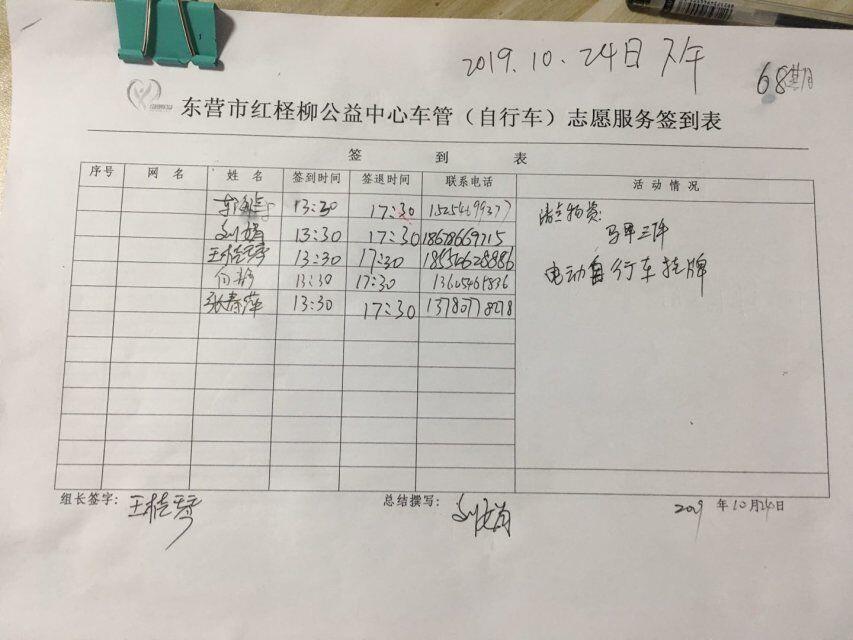 2019.10.24日下午
68期
东营市红柽柳公益中心车管（自行车）志愿服务签到表
签 到 表
序号 网 名 姓 名 签到时间 签退时间 联系电话 活动情况
13:30 17:30
刘娟 13:30 17:30 18678669715
王桂琴 13:30 17:30 18554628886
13:30 17:30 13605461836
张春萍 13:30 17:30
物资:
马甲三件
电动自行车挂牌
组长签字: 王桂琴 总结撰写: 刘娟 2019 年10月24日